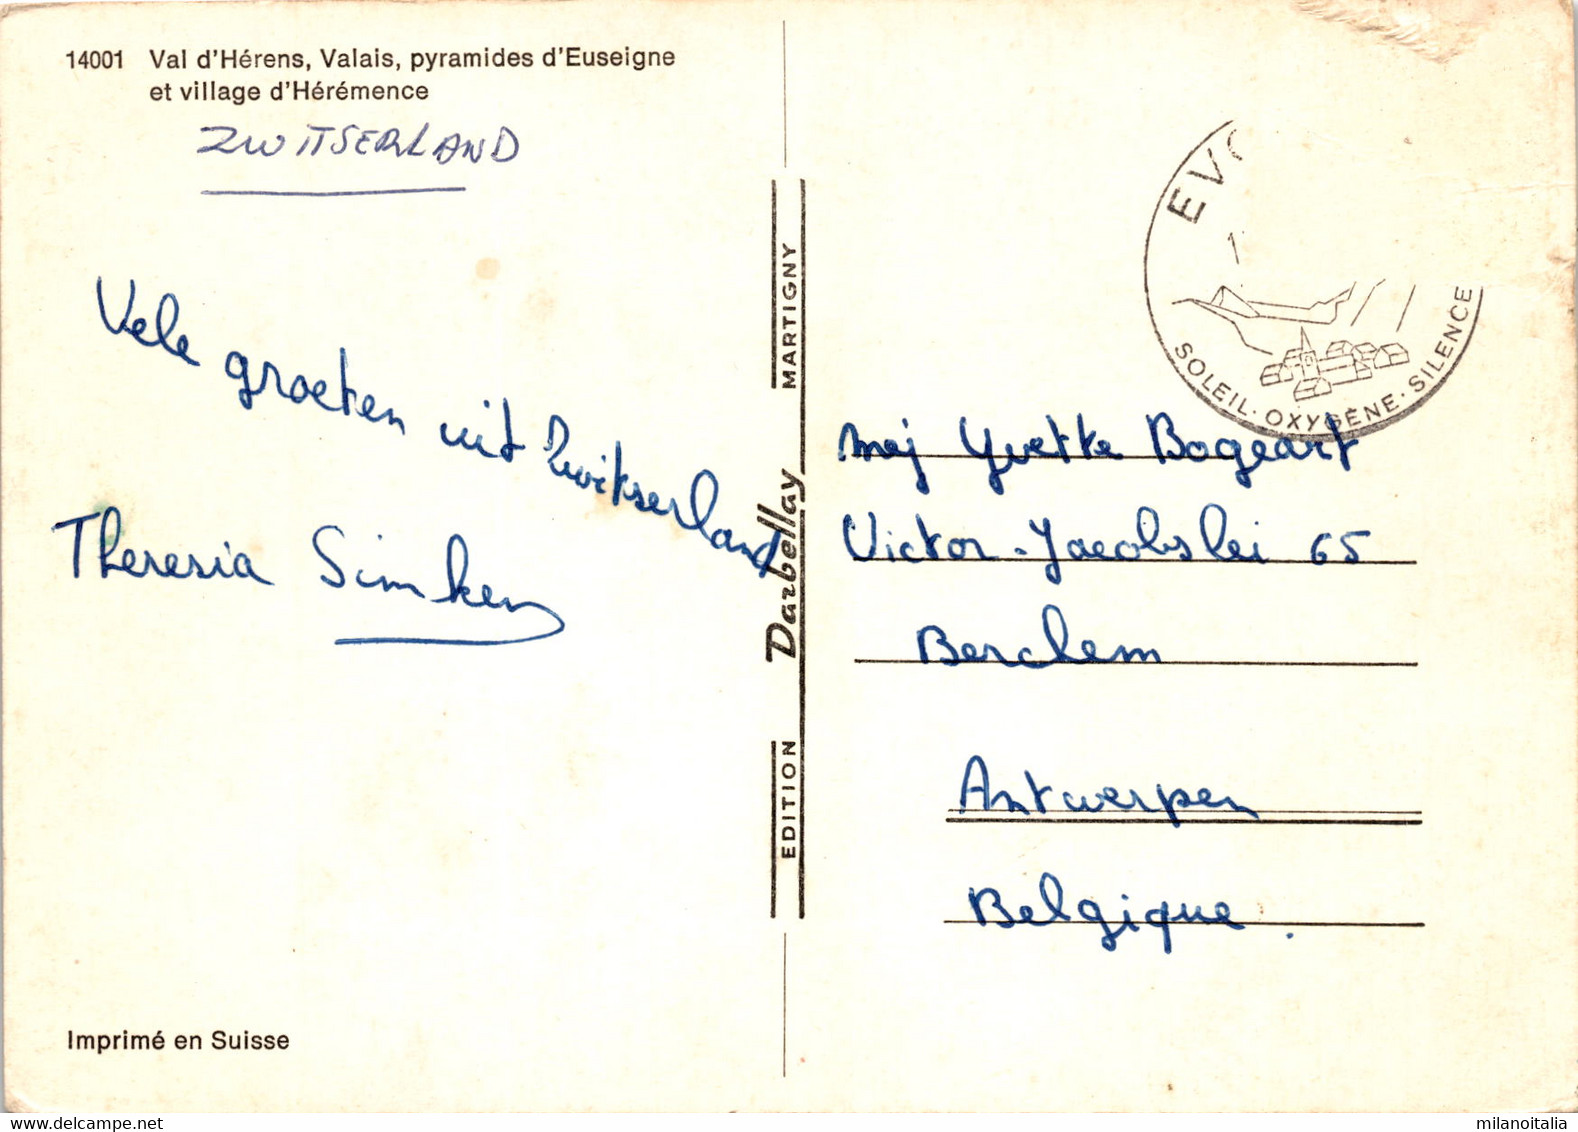 14001 Val d'Hérens, Valais, pyramides d'Euseigne
et village d'Hérémence
ZWITSERLAND
Vele groeten uit Zwitserland
Theresia Simkens
Imprimé en Suisse
EDITION Darbellay MARTIGNY
SOLEIL · OXYGÈNE · SILENCE
mej Yvette Bogeart
Victor-Jacobslei 65
Berchem
Antwerpen
Belgique.
milanoitalia